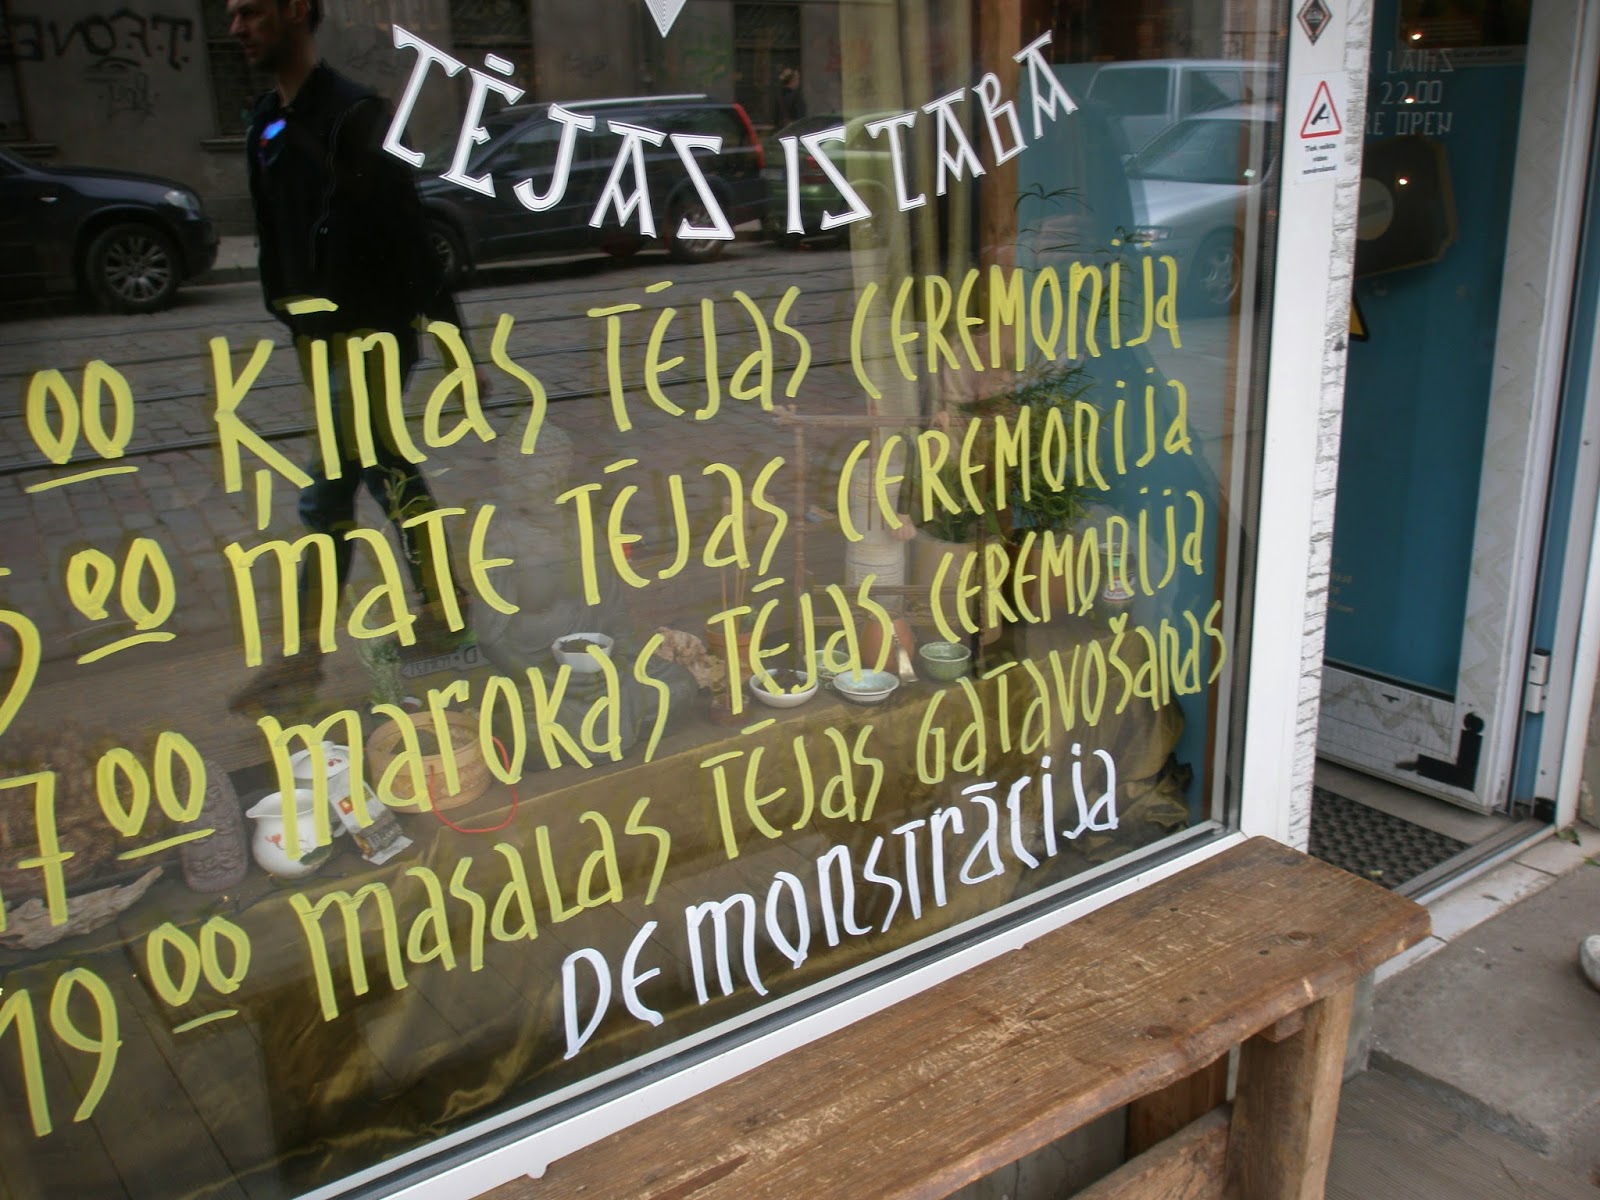 TĒJAS ISTABA
00 ĶĪNAS TĒJAS CEREMONIJA
5 00 MATE TĒJAS CEREMONIJA
17 00 MAROKAS TĒJAS CEREMONIJA
19 00 MASALAS TĒJAS GATAVOŠANAS
DEMONSTRĀCIJA
LAIKS
22.00
RE OPEN
Tiek veikta
video
novērošana!